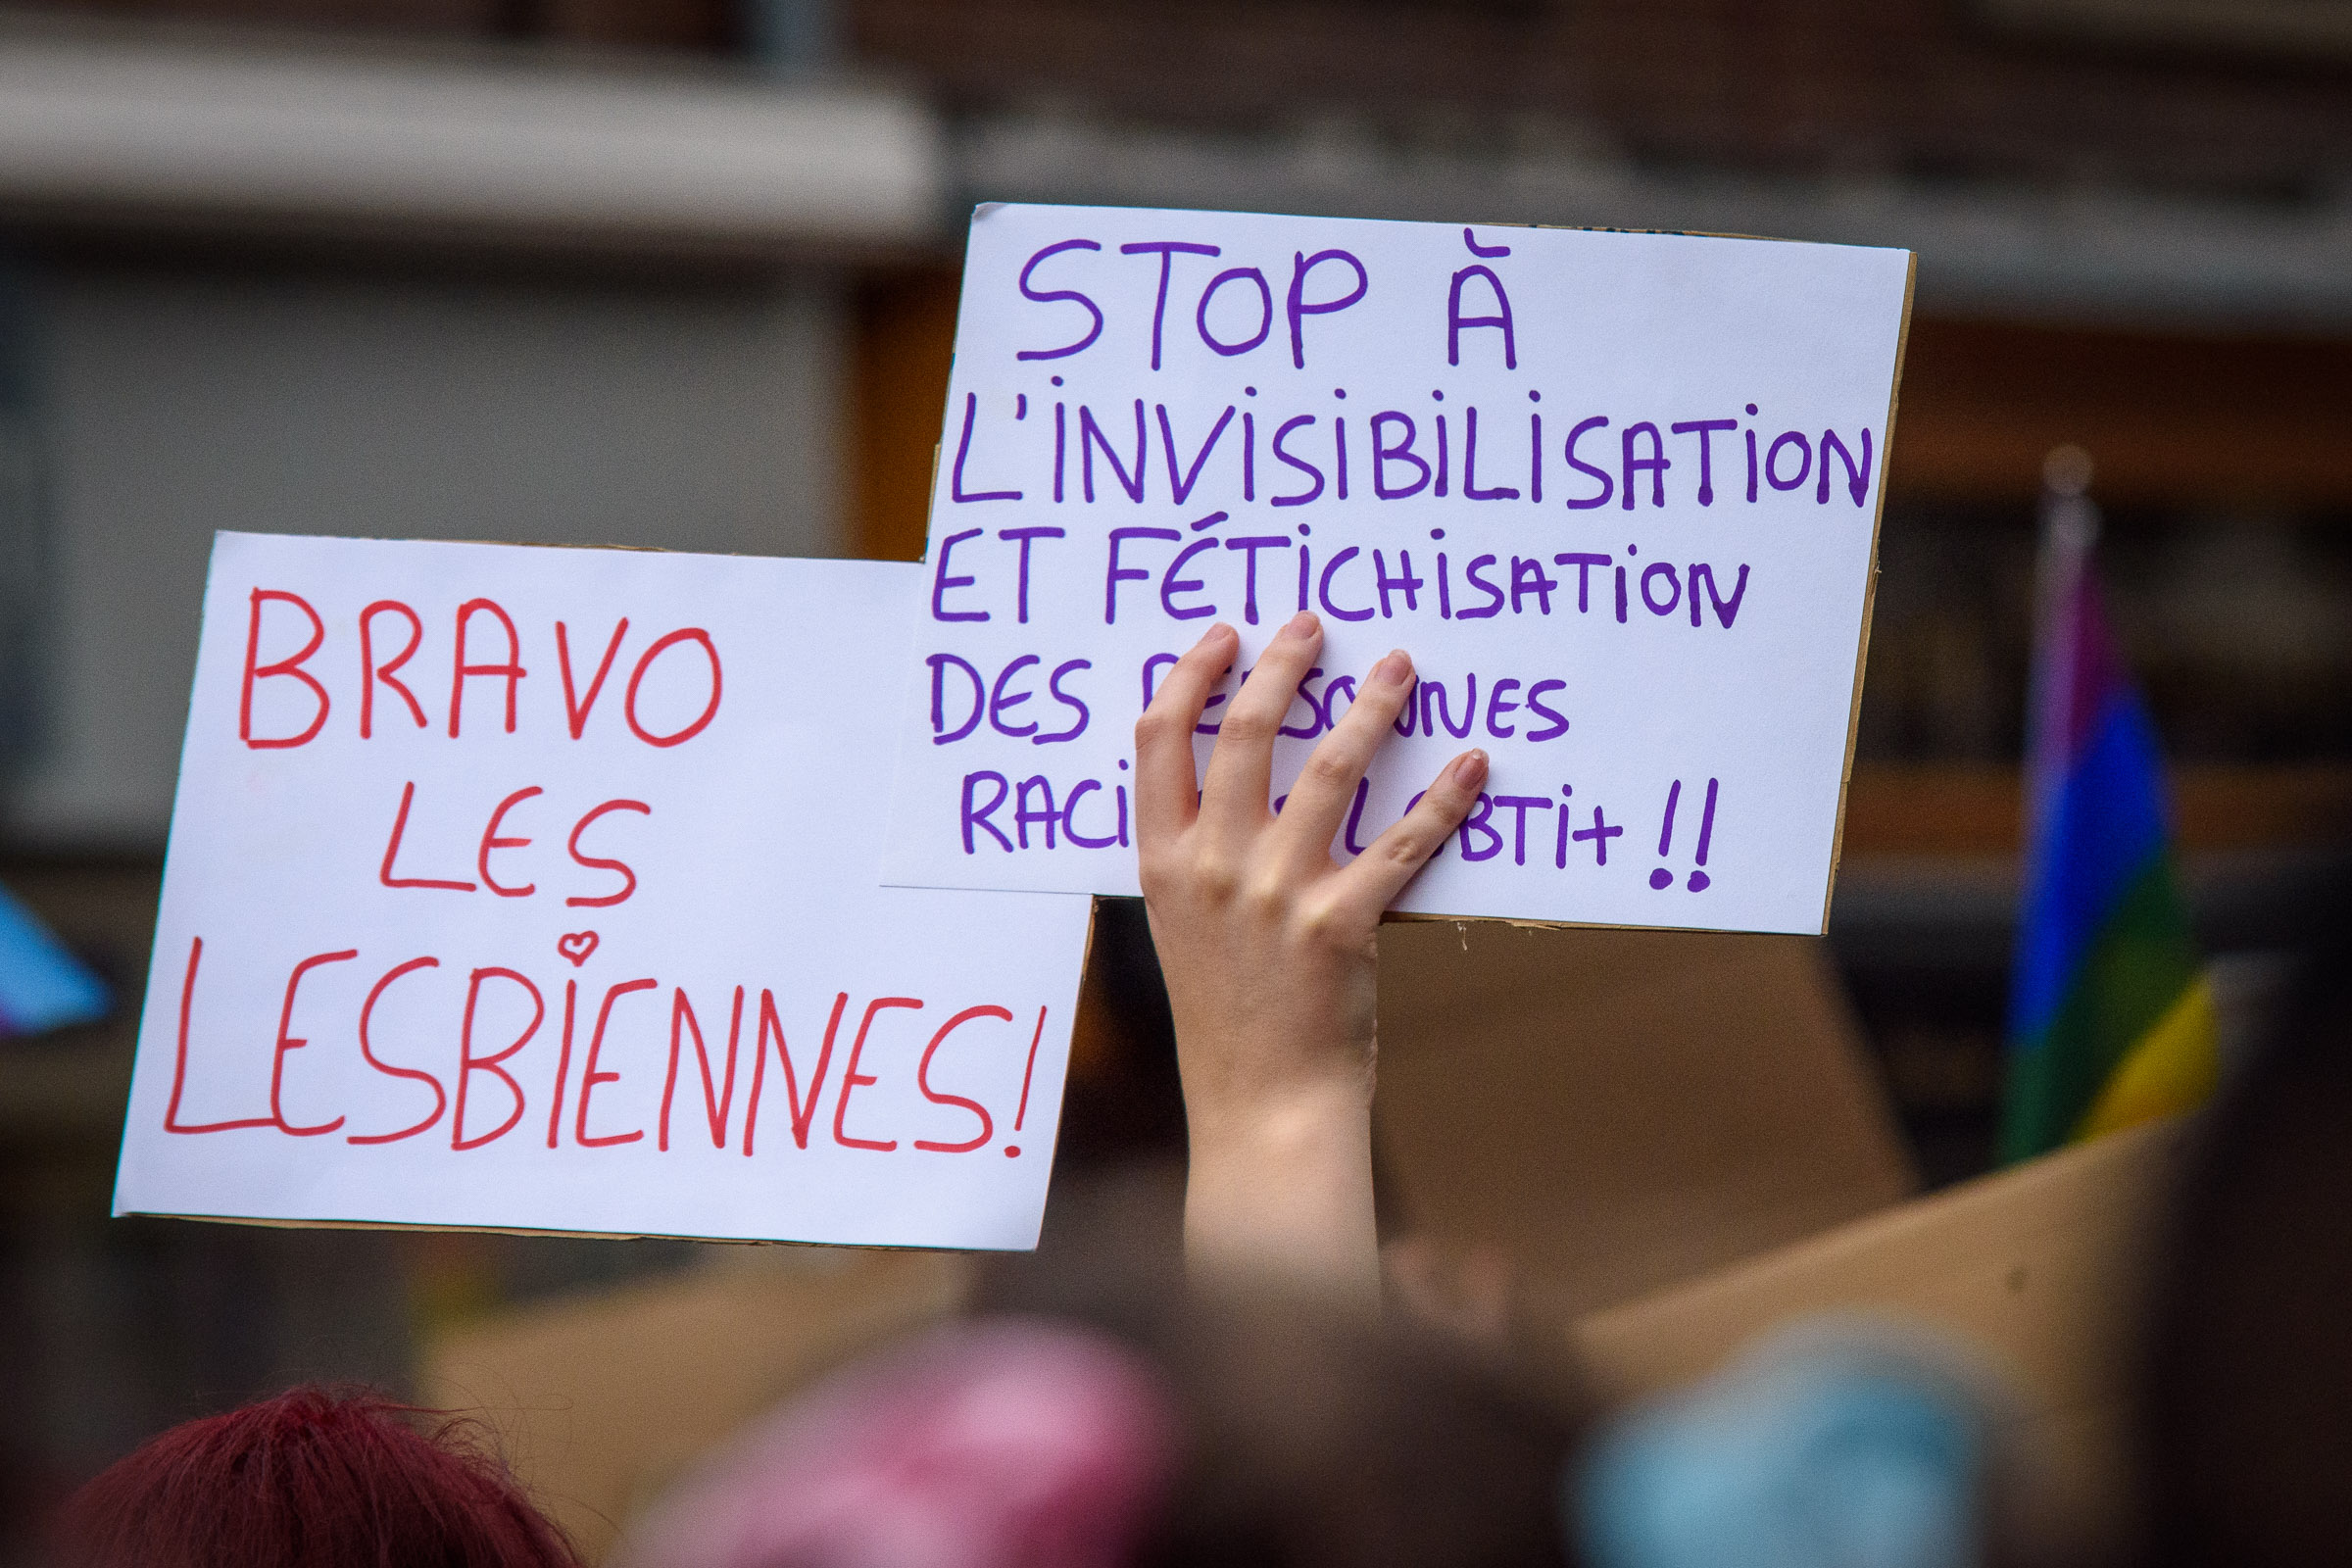 BRAVO
LES
LESBIENNES!
STOP À
L'INVISIBILISATION
ET FÉTICHISATION
DES PERSONNES
LGBTI+ !!